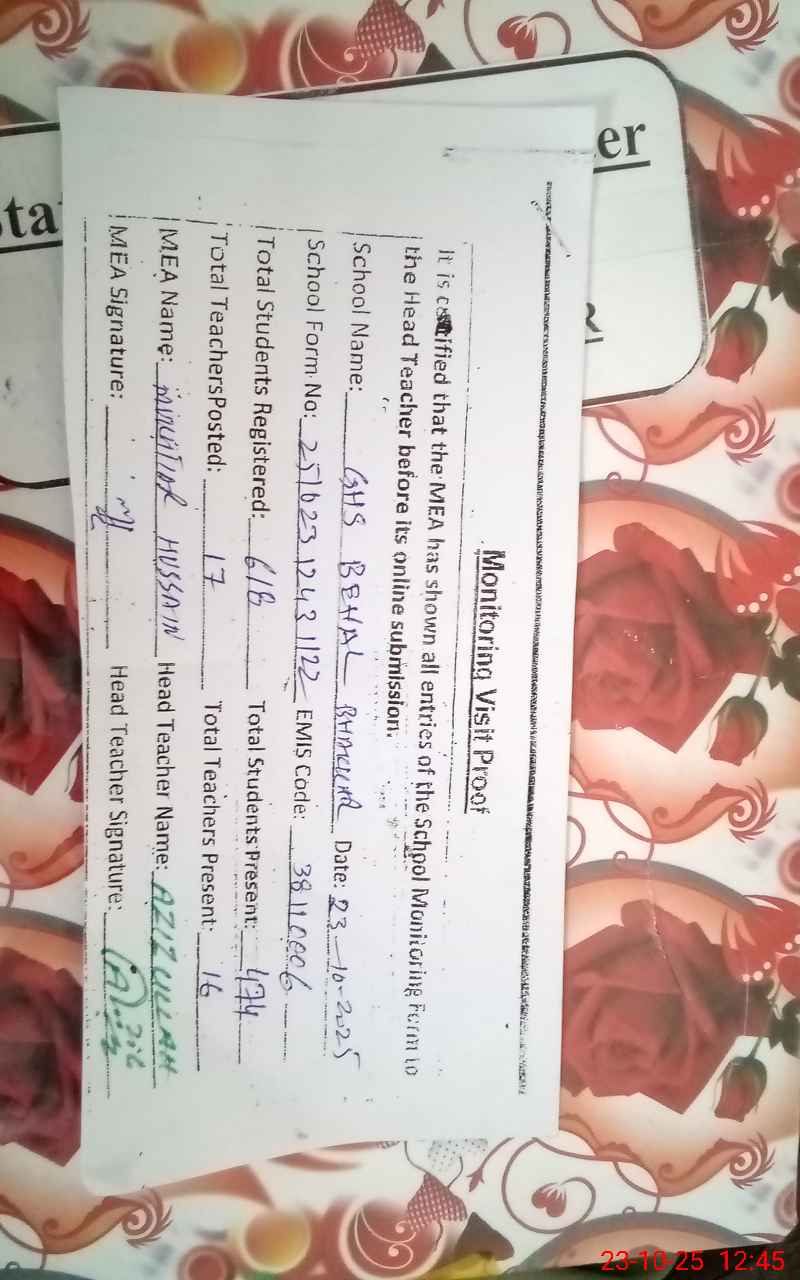 er
Sta
Monitoring Visit Proof
It is certified that the MEA has shown all entries of the School Monitoring Form to
the Head Teacher before its online submission.
School Name: GHS BEHAL BHAKKAR Date: 23-10-2025
School Form No: 25102312431122 EMIS Code: 38110006
Total Students Registered: 618 Total Students Present: 474
Total Teachers Posted: 17 Total Teachers Present: 16
MEA Name: HUSSAIN Head Teacher Name: AZIZ ULLAH
MEA Signature: Head Teacher Signature: Aziz
23-10-25 12:45